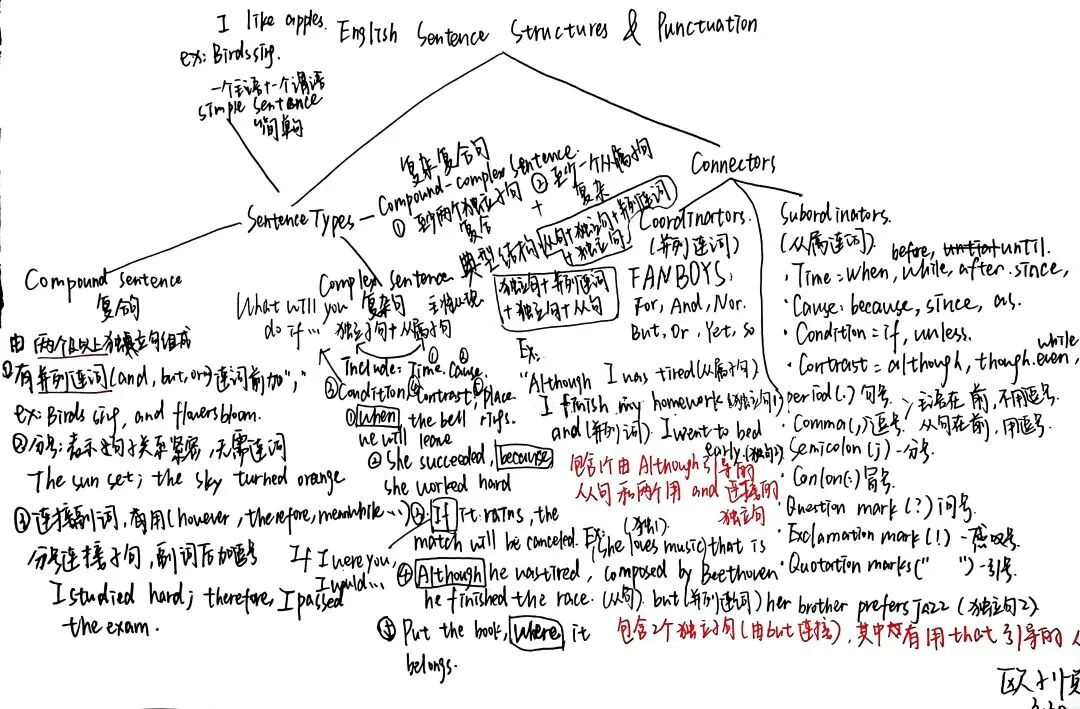 English Sentence Structures & Punctuation
I like apples.
ex: Birds sing.
一个主语+一个谓语
simple sentence
简单句
Sentence Types
Compound sentence
复合句
由两个以上独立句组成
①有并列连词(and, but, or) 连词前加","
ex: Birds sing, and flowers bloom.
②分号:表示句子关系紧密,无需连词
The sun set; the sky turned orange
③连接副词,有用(however, therefore, meanwhile...)
分号连接子句,副词后加逗号
I studied hard; therefore, I passed
the exam.
Complex sentence
复杂句 主将从现
What will you
do if...
独立子句+从属子句
Include: ①Time. ②Cause.
③Condition ④Contrast. ⑤place.
①when the bell rings.
we will leave
②She succeeded, because
she worked hard
③If it rains, the
match will be canceled.
If I were you,
I would...
④Although he was tired,
he finished the race.
⑤Put the book, where it
belongs.
复杂复合句
Compound-complex sentence.
①至少两个独立子句 ②至少一个从属子句
复合 + 复杂
典型结构
从句+独立句+并列连词
+独立句
独立句+并列连词
+独立句+从句
Ex:
"Although I was tired(从属子句)
I finish my homework(独立句1)
and(并列连词). I went to bed
early.(独立句2)
包含1个由Although引导的
从句和两个用and连接的
独立句
Ex:
(独立1)
(She loves music) that is
composed by Beethoven
(从句). but(并列连词) her brother prefers Jazz (独立句2).
包含2个独立子句(由but连接),其中有用that引导的
Connectors
Coordinators.
(并列连词)
FANBOYS:
For, And, Nor.
But, Or, Yet, so
Subordinators.
(从属连词)
before, until.
·Time=when, while, after. since,
·Cause: because, since, as.
·Condition=if, unless.
while
·Contrast=although, though. even,
period(.) 句号.
Comma(,)逗号.
主语在前,不用逗号.
从句在前,用逗号.
Semicolon(;)-分号.
Conlon(:)冒号.
Question mark(?)问号.
·Exclamation mark(!)-感叹号.
·Quotation marks(" ")-引号.